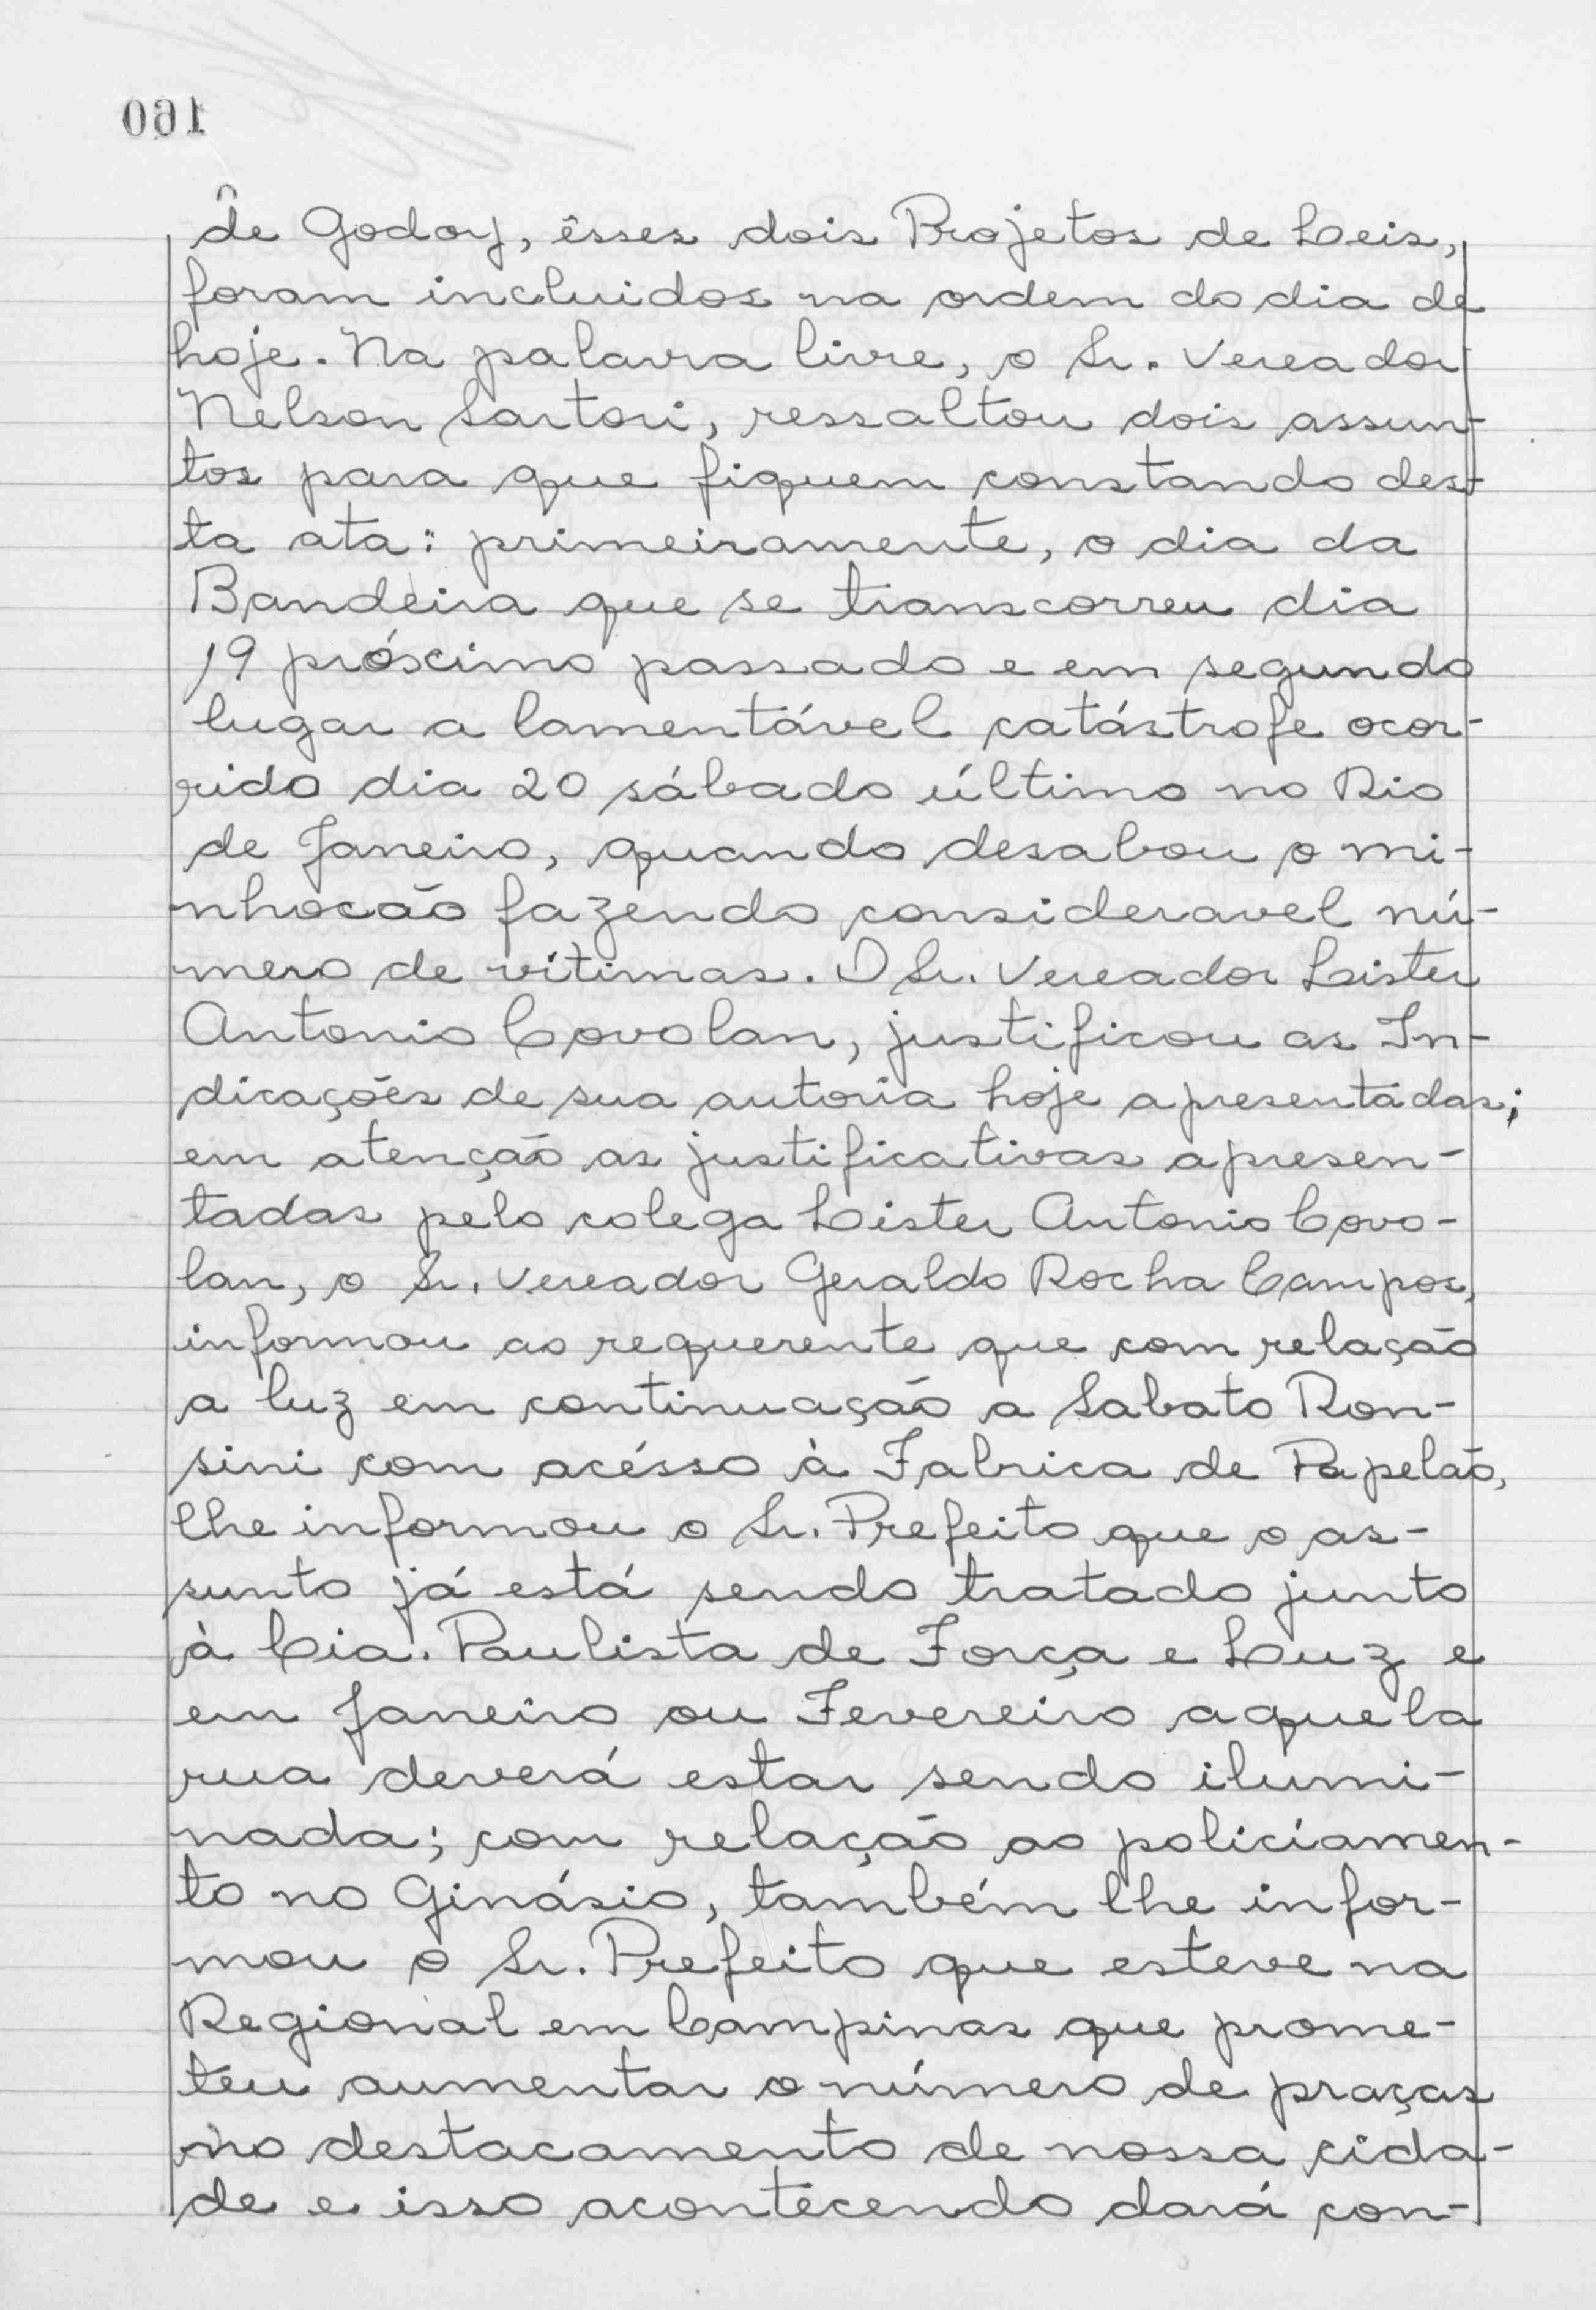 160
de Godoy, êsses dois Projetos de Leis,
foram incluidos na ordem do dia de
hoje. Na palavra livre, o Sr. Vereador
Nelson Sartori, ressaltou dois assun-
tos para que fiquem constando des-
ta ata: primeiramente, o dia da
Bandeira que se transcorreu dia
19 próximo passado e em segundo
lugar a lamentável catástrofe ocor-
rido dia 20 sábado último no Rio
de Janeiro, quando desabou o mi-
nhocão fazendo consideravel nú-
mero de vítimas. O Sr. Vereador Lister
Antonio Covolan, justificou as In-
dicações de sua autoria hoje apresentadas;
em atenção as justificativas apresen-
tadas pelo colega Lister Antonio Covo-
lan, o Sr. Vereador Geraldo Rocha Campos,
informou ao requerente que com relação
a luz em continuação a Sabato Ron-
sini com acésso à Fabrica de Papelão,
lhe informou o Sr. Prefeito que o as-
sunto já está sendo tratado junto
à Cia. Paulista de Força e Luz e
em Janeiro ou Fevereiro aquela
rua deverá estar sendo ilumi-
nada; com relação ao policíamen-
to no Ginásio, também lhe infor-
mou o Sr. Prefeito que esteve na
Regional em Campinas que prome-
teu aumentar o número de praças
no destacamento de nossa cida-
de e isso acontecendo dará con-